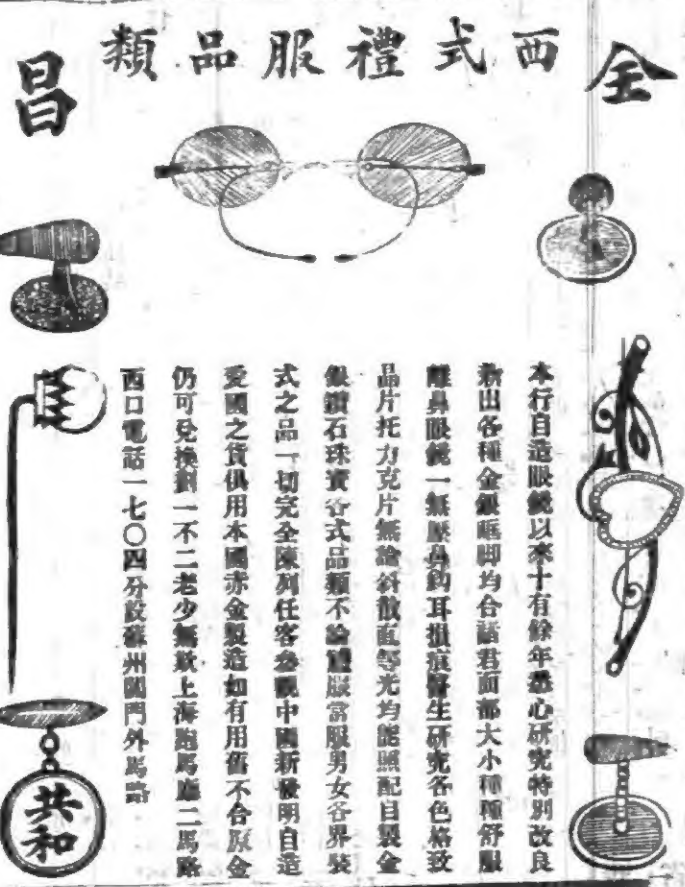 全昌
西式禮服品類
本行自造眼鏡以來十有餘年悉心研究特別改良
新出各種金銀眶脚均合諸君面部大小種種舒服
離鼻眼鏡一無壓鼻鈎耳損痕醫生研究各色格致
晶片托力克片無論斜散直等光均能照配自製金
銀鑽石珠寶各式品類不論禮服常服男女各界裝
式之品一切完全陳列任客參觀中國新發明自造
愛國之貨俱用本國赤金製造如有用舊不合原金
仍可兌換劃一不二老少無欺上海跑馬廳二馬路
西口電話一七〇四分設蘇州閶門外馬路
共和